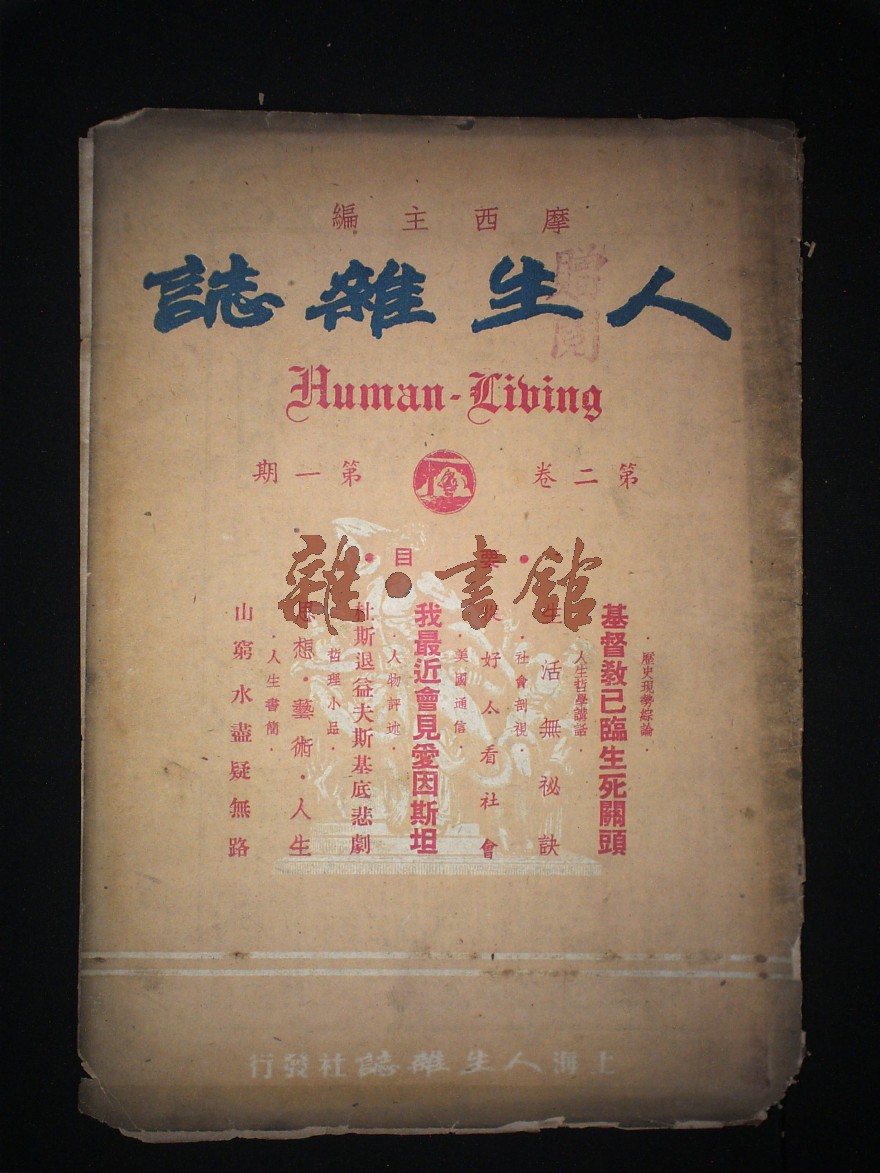 摩西主編
人生雜誌
贈閱
Human-Living
第二卷 第一期
·要目·
雜·書館
·歷史現勢綜論·
基督敎已臨生死關頭
人生哲學講話·
生活無祕訣
·社會剖視·
好人看社會
·美國通信·
我最近會見愛因斯坦
·人物評述·
杜斯退益夫斯基底悲劇
哲理小品·
思想·藝術·人生
·人生書簡·
山窮水盡疑無路
上海人生雜誌社發行